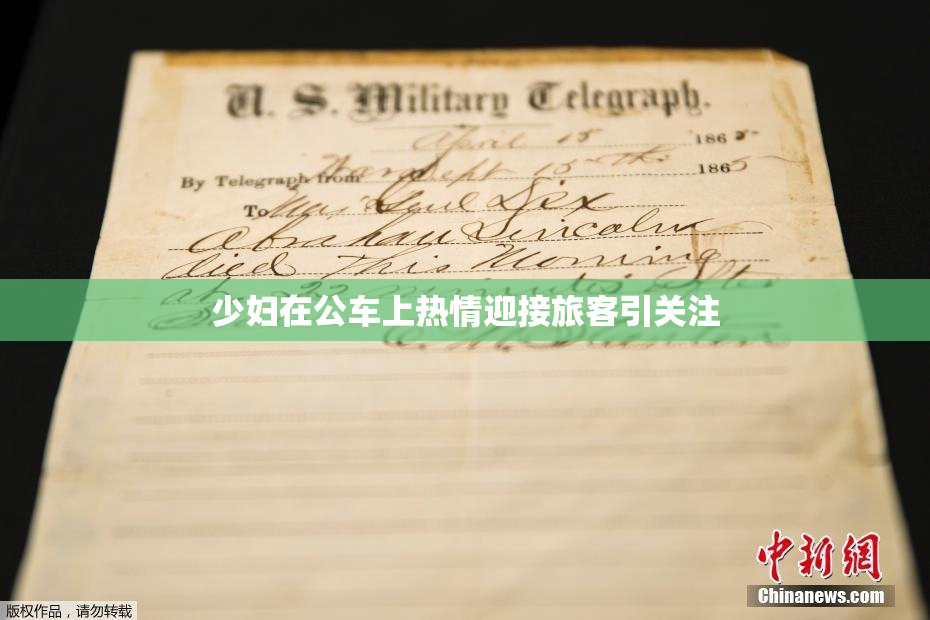 U. S. Military Telegraph.
April 15 1865
By Telegraph from War Dept 15th 1865
To Maj Genl Dix
Abraham Lincoln
died This Morning
at 22 minutes after
少妇在公车上热情迎接旅客引关注
E. M. Stanton
中新网
Chinanews.com
版权作品，请勿转载